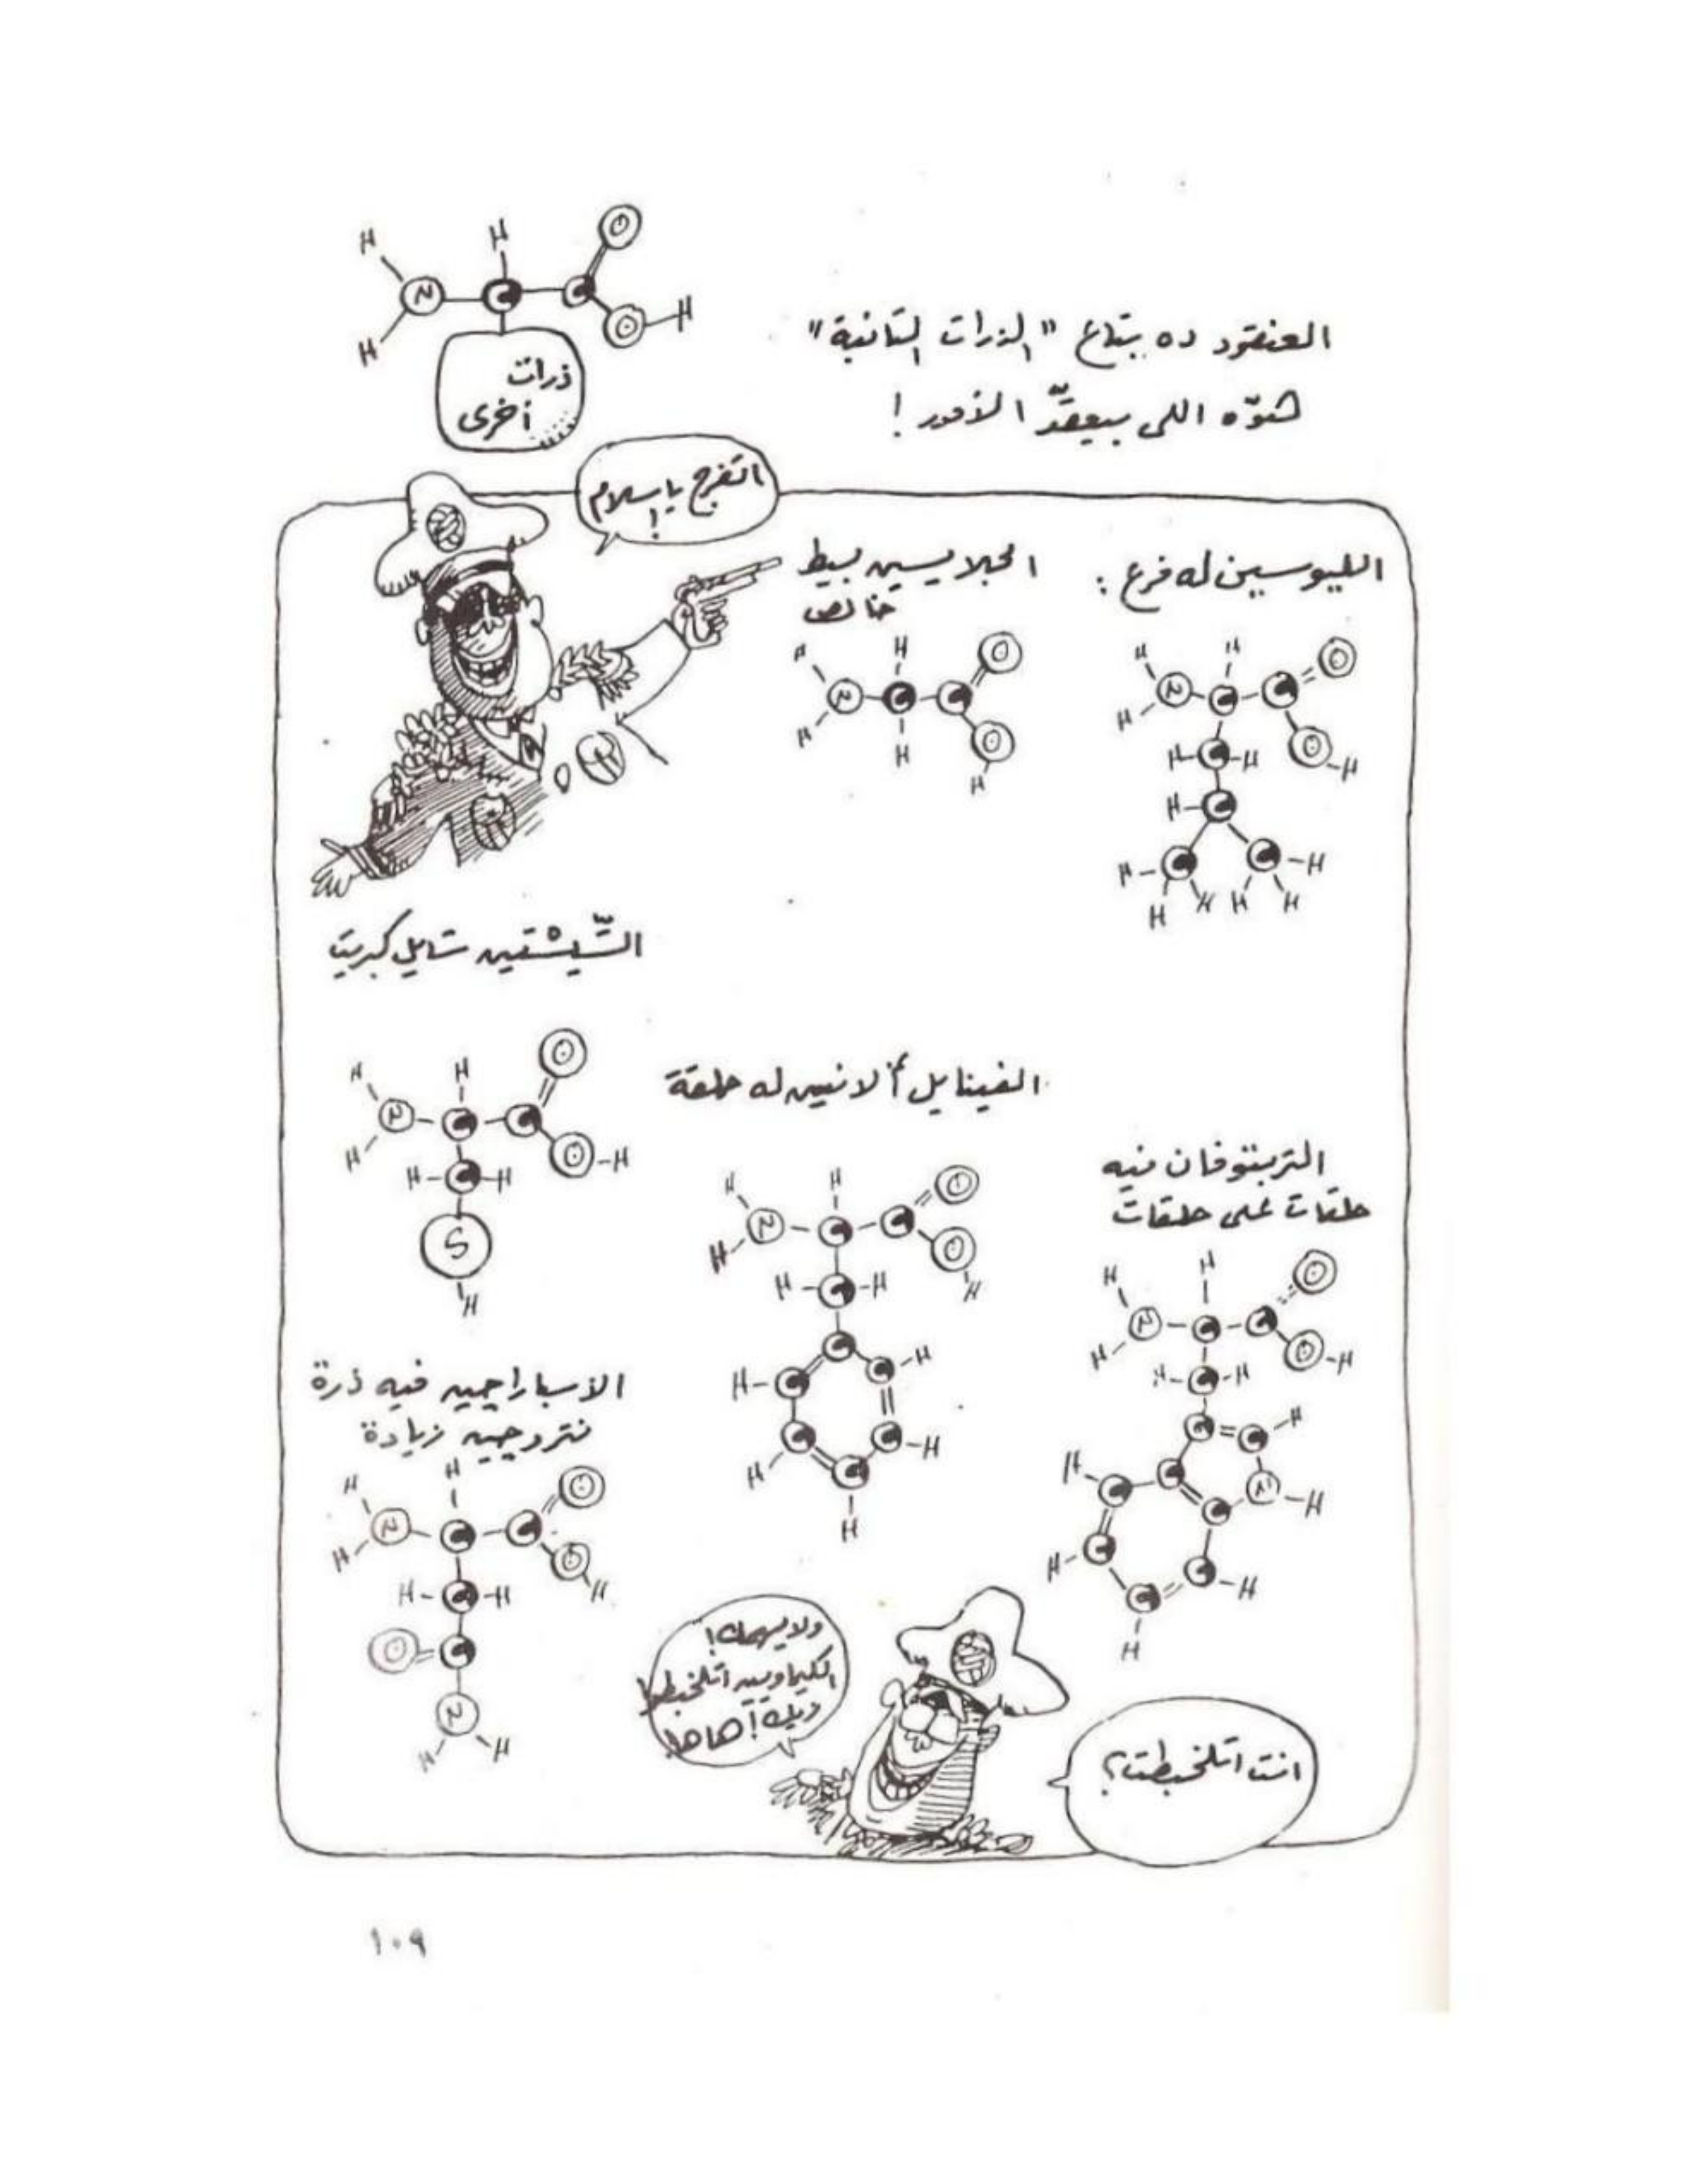 العنقود ده بتاع "الذرات التانية"
هوّه اللى بيعقّد الأمور!
ذرات
أخرى
اتفرج يا سلام!
الليوسين له فرع:
الجلايسين بسيط
خالص
السِّيسْتين شايل كبريت
الفينايل ألانين له حلقة
التربتوفان فيه
حلقات على حلقات
الأسباراجين فيه ذرة
نتروجين زيادة
انت اتلخبطت؟
ولا يهمك!
الكيماويين اتلخبطوا
قبلك! هاها!
١٠٩